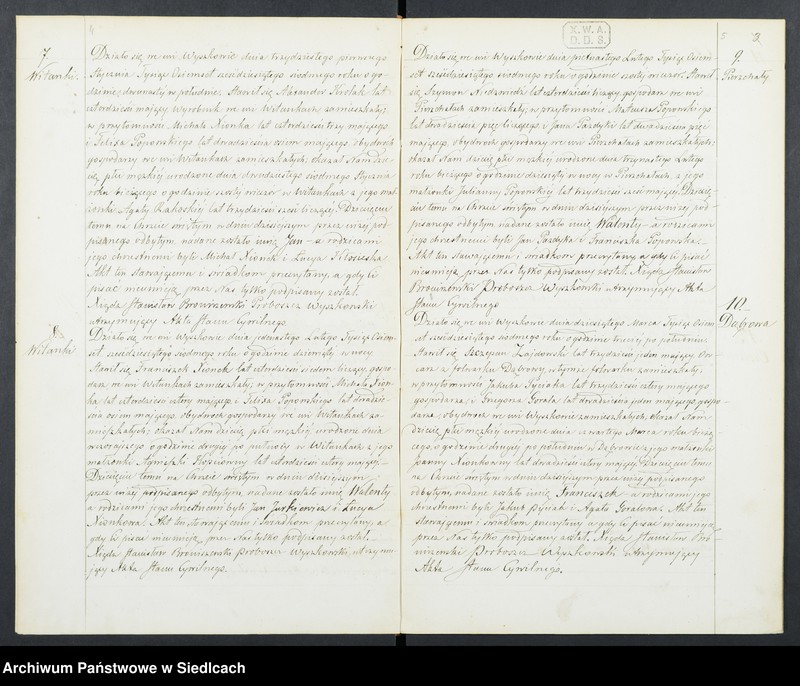 7
Witanki.
Działo się we wsi Wyszkowie dnia trzydziestego pierwszego
Stycznia Tysiąc Ośmset sześdziesiątego siódmego roku o go-
dzinie dwunastej w południe. Stawił się Alexander Królak lat
czterdzieści mający Wyrobnik we wsi Witankach zamieszkały,
w przytomności Michała Nionka lat czterdzieści trzy mającego
i Felixa Popowskiego lat dwadzieścia ośm mającego, obydwoch
gospodarzy we wsi Witankach zamieszkałych; okazał Nam dzie-
cię płci męzkiej urodzone dnia dwudziestego siódmego Stycznia
roku bieżącego o godzinie szóstej wieczór w Witankach z jego mał-
żonki Agaty lat trzydzieści sześć liczącej. Dziecięciu
temu na Chrzcie świętym w dniu dzisiejszym przez niżej pod-
pisanego odbytym, nadane zostało imię Jan a rodzicami
jego chrzestnemi byli Michał Nionek i Łucya
Akt ten stawającemu i świadkom przeczytany, a gdy ci
pisać nieumieją przez Nas tylko podpisany został.
Xiądz Stanisław Proboszcz Wyszkowski
utrzymujący Akta Stanu Cywilnego.
8
Witanki
Działo się we wsi Wyszkowie dnia jedenastego Lutego Tysiąc Ośm-
set sześdziesiątego siódmego roku o godzinie dziewiątej w nocy
Stawił się Franciszek Nionek lat czterdzieści siedem liczący, gospo-
darz we wsi Witankach zamieszkały; w przytomności Michała Nion-
ka lat czterdzieści cztery mającego i Felixa Popowskiego lat dwadzie-
ścia ośm mającego, obydwoch gospodarzy we wsi Witankach za-
mieszkałych; okazał Nam dziecię płci męzkiej, urodzone dnia
wczorajszego o godzinie drugiej po północy w Witankach z jego
małżonki Agnieszki lat czterdzieści cztery mającej
Dziecięciu temu na Chrzcie świętym w dniu dzisiejszym
przez niżej podpisanego odbytym, nadane zostało imię Walenty
a rodzicami jego chrzestnemi byli Jan Jurkiewicz i Łucya
Nionkowa. Akt ten stawającemu i świadkom przeczytany, a
gdy ci pisać nieumieją, przez Nas tylko podpisany został.
Xiądz Stanisław Proboszcz Wyszkowski, utrzymu-
jący Akta Stanu Cywilnego.
X.W.A.
D.D.S.
5
9.
Działo się we wsi Wyszkowie dnia piętnastego Lutego Tysiąc Ośm-
set sześdziesiątego siódmego roku o godzinie szóstej wieczor. Stawił
się Szymon lat czterdzieści liczący, gospodarz we wsi
zamieszkały, w przytomności Mateusza Popowskiego
lat dwadzieścia pięć liczącego i Jana Pazdyki lat dwadzieścia pięć
mającego, obydwoch gospodarzy we wsi zamieszkałych;
okazał Nam dziecię płci męzkiej urodzone dnia trzynastego Lutego
roku bieżącego o godzinie dziesiątej w nocy w z jego
małżonki Julianny Popowskiej lat trzydzieści sześć mającej. Dziecię-
ciu temu na Chrzcie świętym w dniu dzisiejszym przez niżej pod-
pisanego odbytym, nadane zostało imię Walenty a rodzicami
jego chrzestnemi byli Jan Pazdyka i Franciszka Popowska.
Akt ten stawającemu i świadkom przeczytany a gdy ci pisać
nieumieją przez Nas tylko podpisany został. Xiądz Stanisław
Proboszcz Wyszkowski utrzymujący Akta
Stanu Cywilnego
10
Dąbrowa
Działo się we wsi Wyszkowie dnia dziesiątego Marca Tysiąc Ośm-
set sześdziesiątego siódmego roku o godzinie trzeciej po południu
Stawił się Szczepan Zajdowski lat trzydzieści jeden mający Ow-
czarz z folwarku Dąbrowy w tymże folwarku zamieszkały;
w przytomności Jakuba lat trzydzieści cztery mającego
gospodarza, i Grzegorza Gorala lat dwadzieścia jeden mającego, gospo-
darza, obydwoch we wsi Wyszkowie zamieszkałych, okazał Nam
dziecię płci męzkiej urodzone dnia czwartego Marca roku bieżą-
cego, o godzinie drugiej po południu w Dąbrowie z jego małżonki
Joanny Nionkowny lat dwadzieścia cztery mającej. Dziecięciu temu
na Chrzcie świętym w dniu dzisiejszym przez niżej podpisanego
odbytym, nadane zostało imię Franciszek a rodzicami jego
chrzestnemi byli Jakub i Agata Goralowa. Akt ten
stawającemu i świadkom przeczytany a gdy ci pisać nieumieją
przez Nas tylko podpisany został. Xiądz Stanisław
Proboszcz Wyszkowski utrzymujący
Akta Stanu Cywilnego.
Archiwum Państwowe w Siedlcach